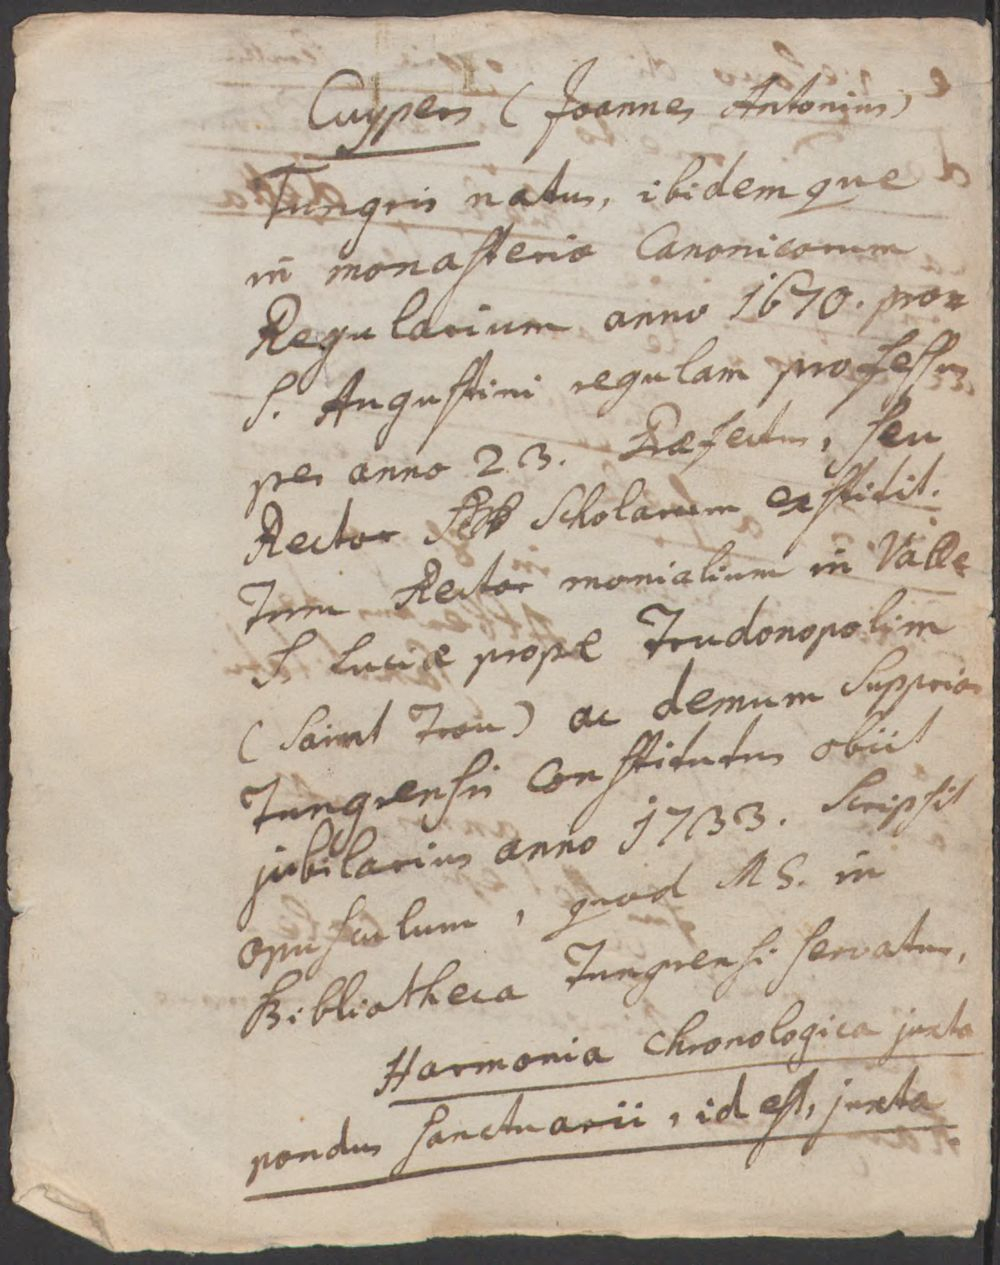 Cuypers (Joannes Antonius)
Tungris natus, ibidemque
in monasterio Canonicorum
Regularium anno 1670.
S. Augustini regulam professus
per anno 23. Præfectus, seu
Rector Scholarum exstitit.
Tum Rector monialium in Valle
S. Luciæ prope Trudonopolim
(Saint Tron) ac demum Supprior
Tungrensis constitutus obiit
jubilarius anno 1733. Scripsit
opusculum, quod MS. in
Bibliotheca Tungrensi servatur,
Harmonia chronologica juxta
pondus sanctuarii, id est, juxta